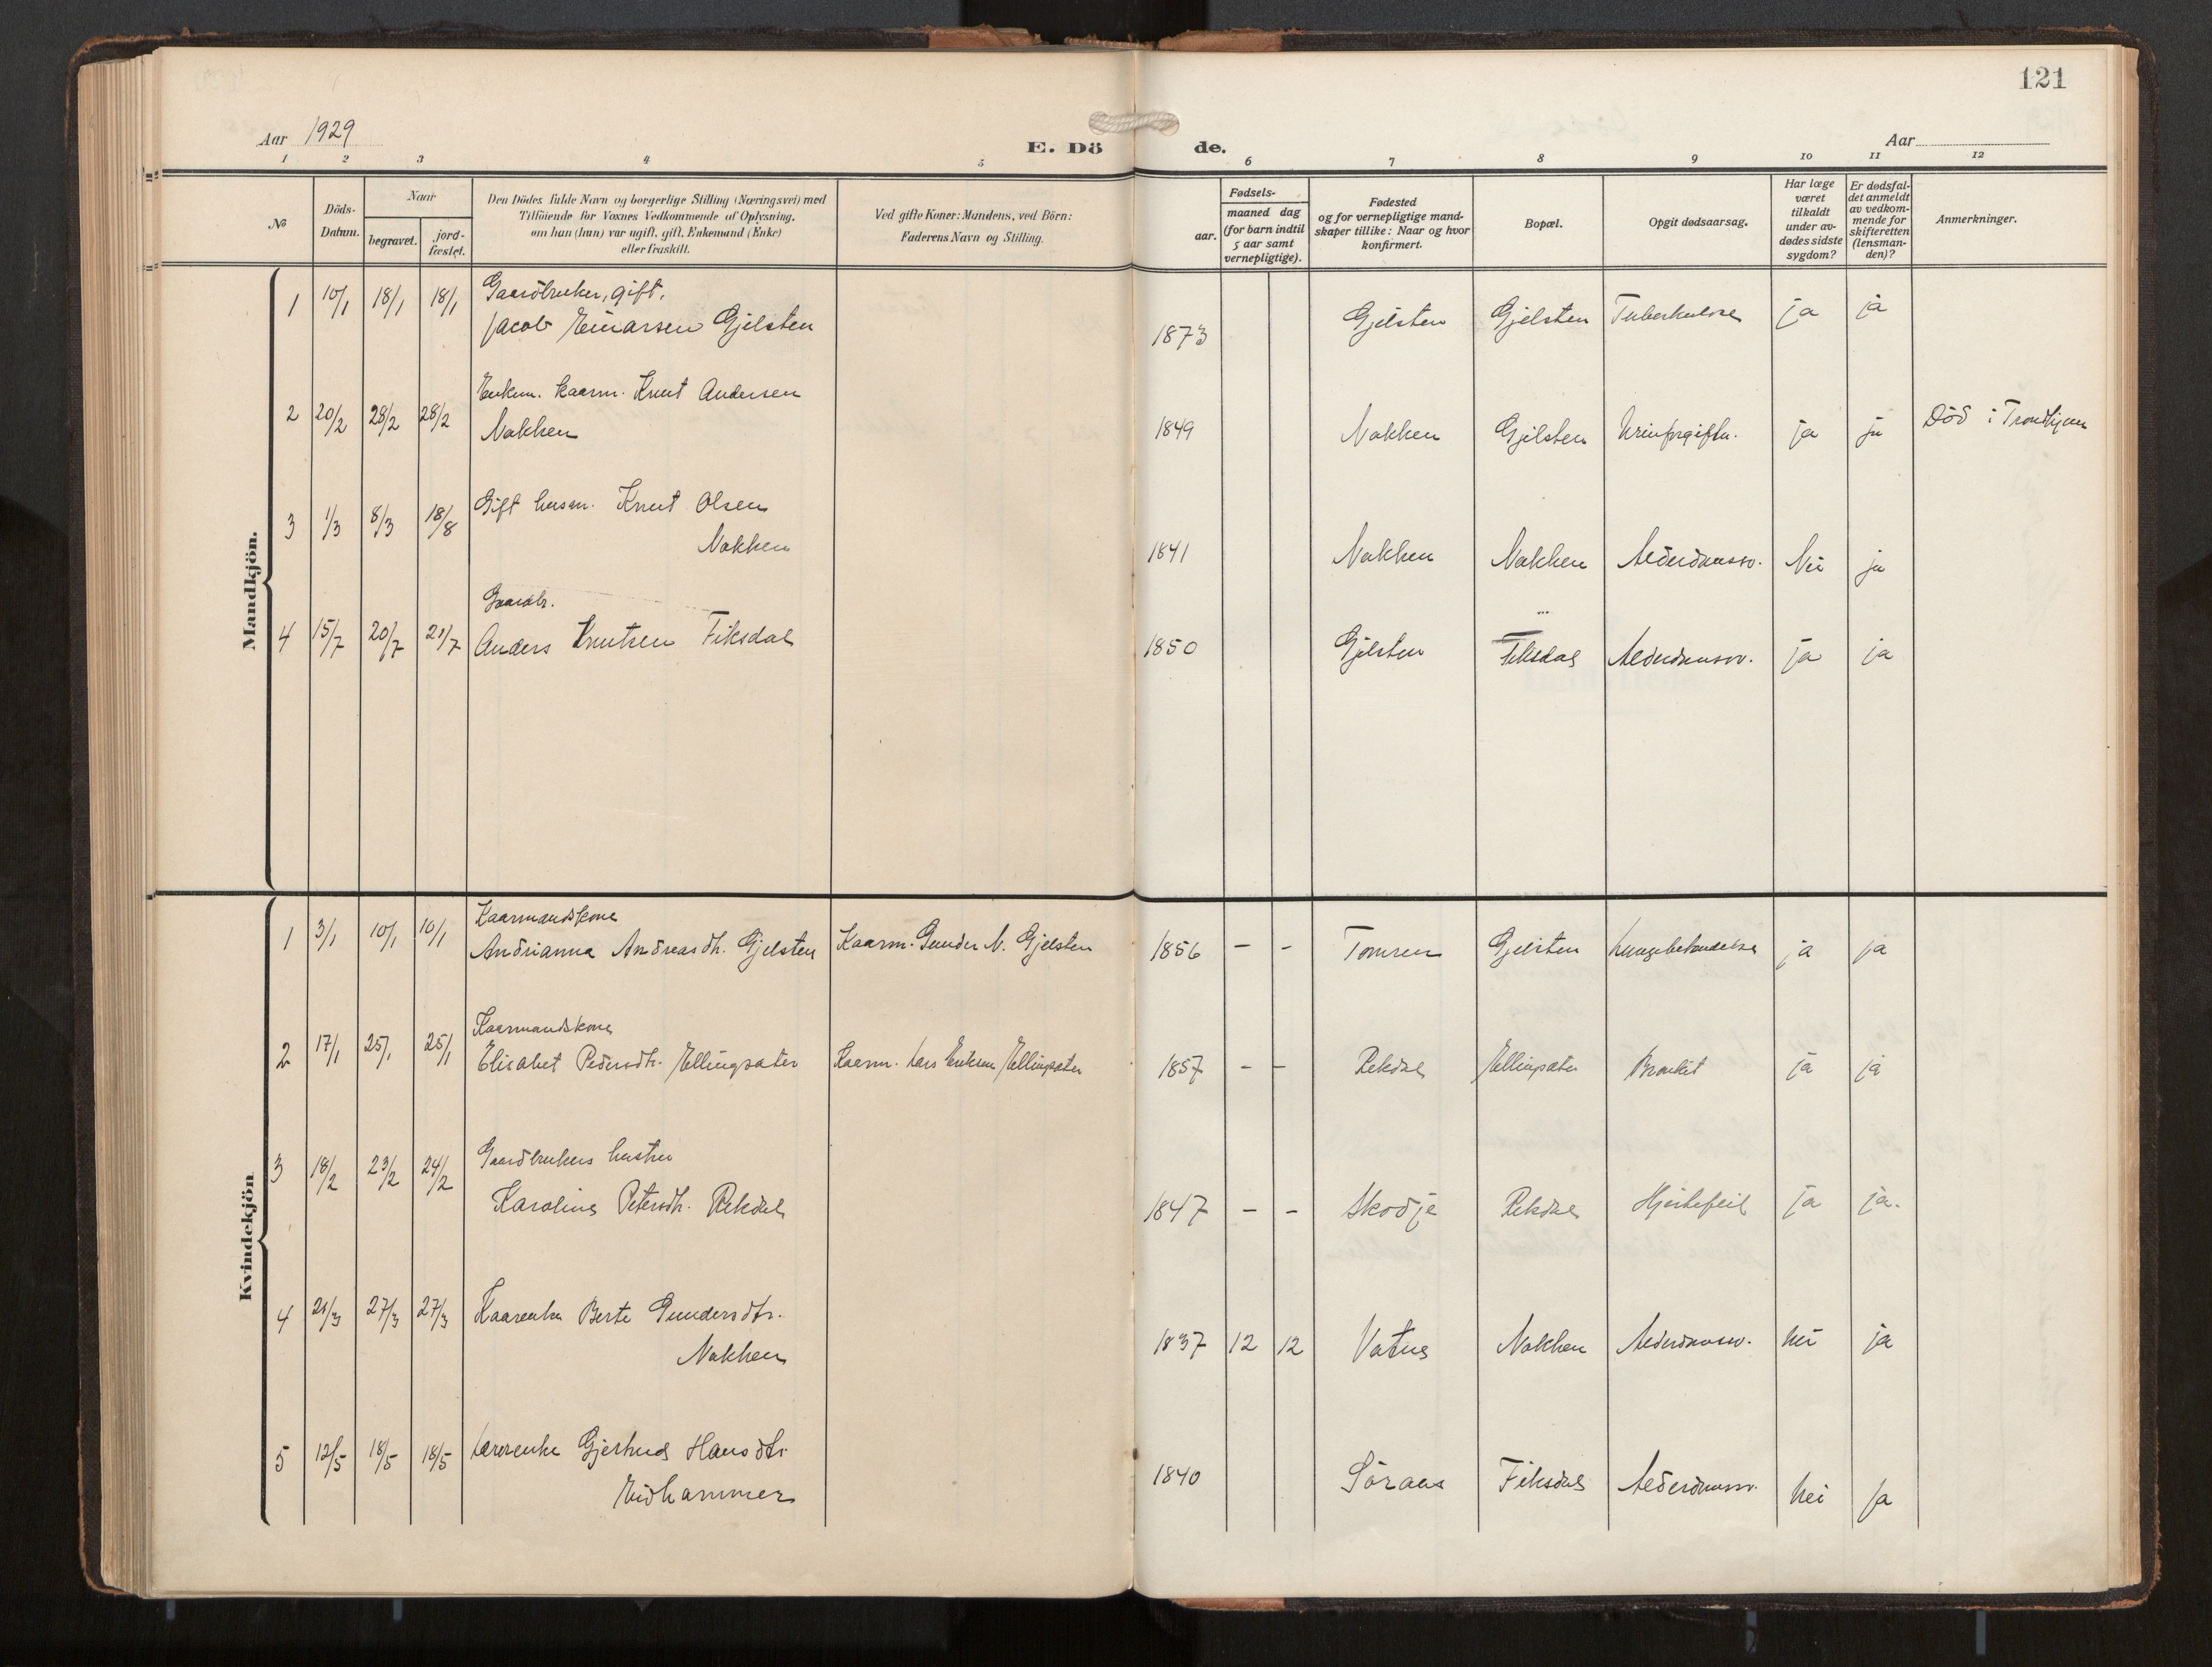 121
Aar 1929
E. Dö de.
Aar
1 2 3 4 5 6 7 8 9 10 11 12
№
Döds-
Datum.
Naar
begravet.
jord-
fæstet.
Den Dödes fulde Navn og borgerlige Stilling (Næringsvei) med
Tilföiende for Voxnes Vedkommende af Oplysning.
om han (hun) var ugift. gift. Enkemand (Enke)
eller fraskilt.
Ved gifte Koner: Mandens, ved Börn:
Faderens Navn og Stilling.
Fødsels-
aar.
maaned dag
(for barn indtil
5 aar samt
vernepligtige).
Fødested
og for vernepligtige mand-
skaper tillike: Naar og hvor
konfirmert.
Bopæl.
Opgit dødsaarsag.
Har læge
været
tilkaldt
under av-
dødes sidste
sygdom?
Er dødsfal-
det anmeldt
av vedkom-
mende for
skifteretten
(lensman-
den)?
Anmerkninger.
Mandkjön.
1 10/1 18/1 18/1 Gaardbruker, gift.
Jacob Einarsen Gjelsten 1873 Gjelsten Gjelsten Tuberkulose ja ja
2 20/2 28/2 28/2 Enkem. kaarm. Knut Andersen
Nakken 1849 Nakken Gjelsten Urinforgiftn. ja ja Död i Trondhjem
3 1/3 8/3 18/8 Gift husm. Knut Olsen
Nakken 1841 Nakken Nakken Alderdomssv. Nei ja
Gaardbr.
4 15/7 20/7 21/7 Anders Knutsen Fiksdal 1850 Gjelsten Fiksdal Alderdomssv. ja ja
Kvindekjön
1 3/1 10/1 10/1 Kaarmandskone
Andrianna Andreasdh. Gjelsten Kaarm. Gunder N. Gjelsten 1856 - - Tomren Gjelsten Lungebetændelse ja ja
2 17/1 25/1 25/1 Kaarmandskone
Elisabet Pedersdtr. Ellingsæter Kaarm. Lars Eriksen Ellingsæter 1857 - - Rekdal Ellingsæter Bronkit ja ja
3 18/2 23/2 24/2 Gaardbrukers hustru
Karoline Petersdh. Rekdal 1847 - - Skodje Rekdal Hjertefeil ja ja.
4 21/3 27/3 27/3 Kaarenke Berte Gundersdtr.
Nakken 1837 12 12 Vatne Nakken Alderdomssv. nei ja
5 12/5 18/5 18/5 Lærerenke Gjertrud Hansdtr.
Eidhammer 1840 Söraas Fiksdal Alderdomssv. nei ja